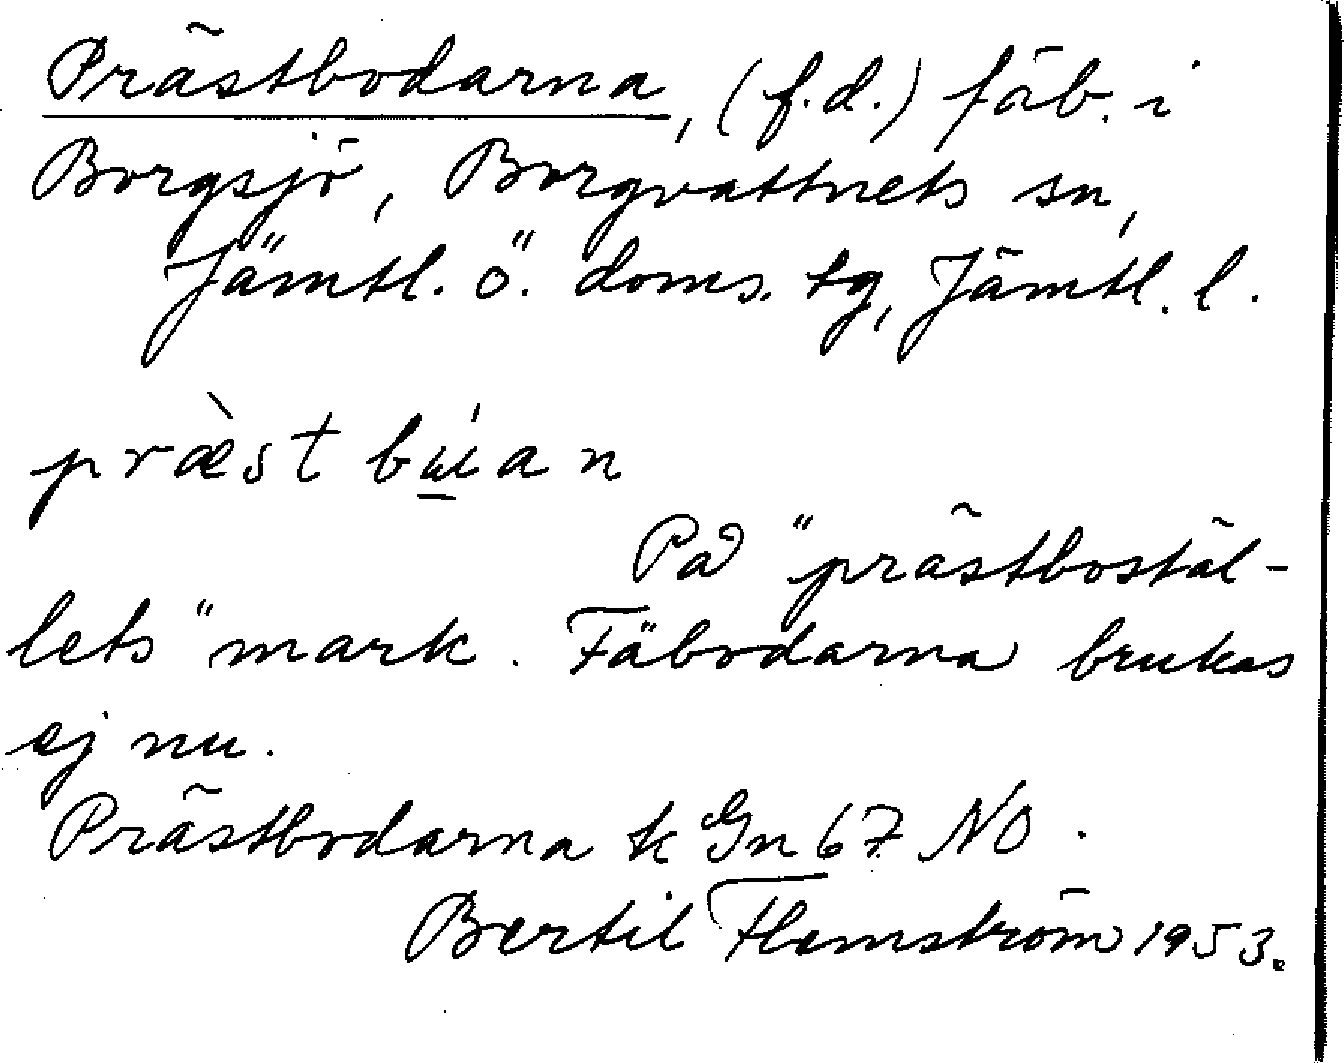 Prästbodarna, (f.d.) fäb. i
Borgsjö, Borgvattnets sn,
Jämtl. ö. doms. tg, Jämtl. l.
præ̀st bɯ̲́an
På "prästbostäl-
lets" mark. Fäbodarna brukas
ej nu.
Prästbodarna k Gn 67 NO.
Bertil Flemström 1953.